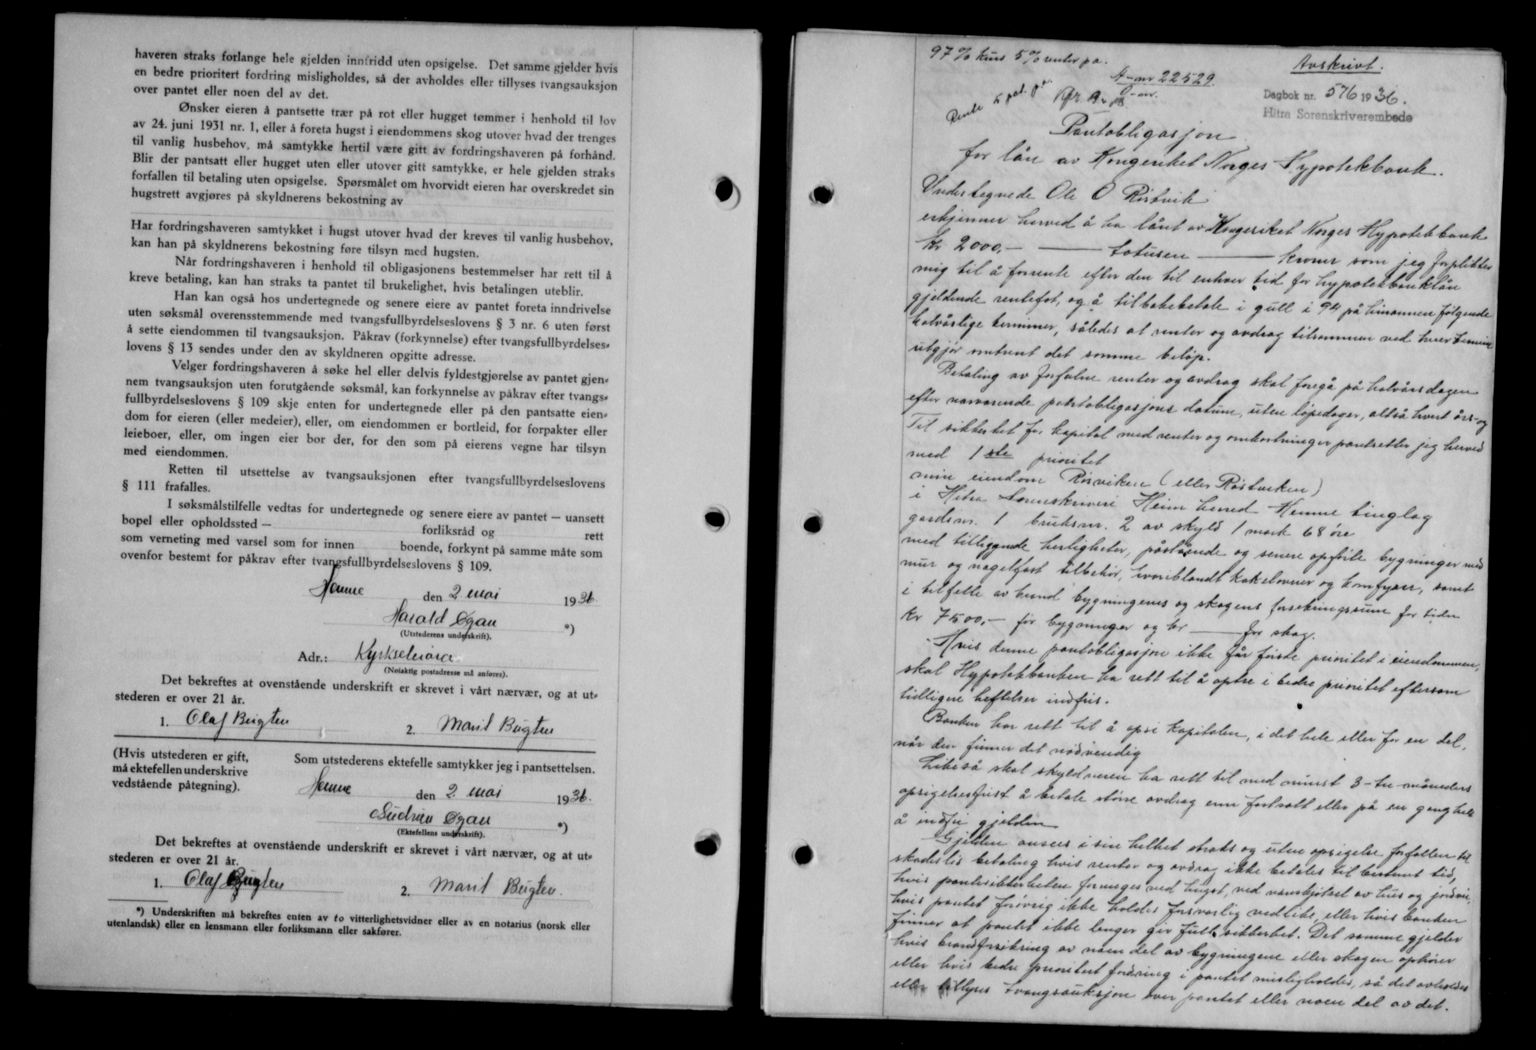 haveren straks forlange hele gjelden innfridd uten opsigelse. Det samme gjelder hvis
en bedre prioritert fordring misligholdes, så der avholdes eller tillyses tvangsauksjon
over pantet eller noen del av det.
Ønsker eieren å pantsette trær på rot eller hugget tømmer i henhold til lov
av 24. juni 1931 nr. 1, eller å foreta hugst i eiendommens skog utover hvad der trenges
til vanlig husbehov, må samtykke hertil være gitt av fordringshaveren på forhånd.
Blir der pantsatt eller hugget uten eller utover gitt samtykke, er hele gjelden straks
forfallen til betaling uten opsigelse. Spørsmålet om hvorvidt eieren har overskredet sin
hugstrett avgjøres på skyldnerens bekostning av
Har fordringshaveren samtykket i hugst utover hvad der kreves til vanlig husbehov,
kan han på skyldnerens bekostning føre tilsyn med hugsten.
Når fordringshaveren i henhold til obligasjonens bestemmelser har rett til å
kreve betaling, kan han straks ta pantet til brukelighet, hvis betalingen uteblir.
Han kan også hos undertegnede og senere eiere av pantet foreta inndrivelse
uten søksmål overensstemmende med tvangsfullbyrdelseslovens § 3 nr. 6 uten først
å sette eiendommen til tvangsauksjon. Påkrav (forkynnelse) efter tvangsfullbyrdelses-
lovens § 13 sendes under den av skyldneren opgitte adresse.
Velger fordringshaveren å søke hel eller delvis fyldestgjørelse av pantet gjen-
nem tvangsauksjon uten forutgående søksmål, kan forkynnelse av påkrav efter tvangs-
fullbyrdelseslovens § 109 skje enten for undertegnede eller på den pantsatte eien-
dom for eieren (eller medeier), eller, om eiendommen er bortleid, for forpakter eller
leieboer, eller, om ingen eier bor der, for den som på eierens vegne har tilsyn
med eiendommen.
Retten til utsettelse av tvangsauksjonen efter tvangsfullbyrdelseslovens
§ 111 frafalles.
I søksmålstilfelle vedtas for undertegnede og senere eiere av pantet — uansett
bopel eller opholdssted — forliksråd og rett
som verneting med varsel som for innen boende, forkynt på samme måte som
ovenfor bestemt for påkrav efter tvangsfullbyrdelseslovens § 109.
Hemne den 2 mai 1936.
Harald Ozau *)
(Utstederens underskrift).
Adr.: Kyrkseterøra
(Nøiaktig postadresse må anføres).
Det bekreftes at ovenstående underskrift er skrevet i vårt nærvær, og at ut-
stederen er over 21 år.
1. Olaf Bugten 2. Marit Bugten
(Hvis utstederen er gift,
må ektefellen underskrive
vedstående påtegning).
Som utstederens ektefelle samtykker jeg i pantsettelsen.
Hemne den 2 mai 1936.
Gudrun Ozau *)
(Ektefellens underskrift).
Det bekreftes at ovenstående underskrift er skrevet i vårt nærvær, og at ut-
stederen er over 21 år.
1. Olaf Bugten 2. Marit Bugten.
*) Underskriften må bekreftes enten av to vitterlighetsvidner eller av en notarius (norsk eller
utenlandsk) eller en lensmann eller forliksmann eller sakfører.
97 % kurs 5 % renter p.a.
Avskrift.
A-nr 22529
Dagbok nr. 576 1936.
Hitra Sorenskriverembede
Pantobligasjon
for lån av Kongeriket Norges Hypotekbank.
Undertegnede Ole O Røstvik
erkjenner herved å ha lånt av Kongeriket Norges Hypotekbank
Kr 2000,- — totusen — kroner som jeg forplikter
mig til å forrente efter den til enhver tid for hypotekbanklån
gjeldende rentefot, og å tilbakebetale i gull i 94 på hinannen følgende
halvårlige terminer, således at renter og avdrag tilsammen ved hver termin
utgjør omtrent det samme beløp.
Betaling av forfalne renter og avdrag skal foregå på halvårsdagen
efter nærværende pantobligasjons datum, uten løpedager, altså hvert års- og
Til sikkerhet for kapital med renter og omkostninger pantsetter jeg herved
med 1 ste prioritet
min eiendom Rosviken (eller Røstviken)
i Hitra Sorenskriveri Heim herred Hemne tinglag
gardsnr. 1 bruksnr. 2 av skyld 1 mark 68 øre
med tilliggende herligheter, påstående og senere opførte bygninger med
mur og nagelfast tilbehør, hvoriblandt kakelovner og komfyrer, samt
i tilfelle av brand bygningenes og skogens forsikringssum for tiden
Kr 7500,- for bygninger og kr — for skog.
Hvis denne pantobligasjon ikke får første prioritet i eiendommen,
skal Hypotekbanken ha rett til å optre i bedre prioritet eftersom
tidligere heftelser innfris.
Banken har rett til å opsi kapitalen, i det hele eller for en del,
når den finner det nødvendig
Likeså skal skyldneren ha rett til med minst 3-tre-måneders
opsigelsesfrist å betale større avdrag enn fastsatt eller på en gang helt
å innfri gjelden
Gjelden anses i sin helhet straks og uten opsigelse forfallen til
skadesløs betaling hvis renter og avdrag ikke betales til bestemt tid,
hvis pantsikkerheten forringes ved hugst, ved vanskjøtsel av hus og jordvei,
hvis pantet forøvrig ikke holdes forsvarlig vedlike, eller hvis banken
finner at pantet ikke lenger gir full sikkerhet. Det samme gjelder
hvis brandforsikring av noen del av bygningene eller skogen ophører
eller hvis bedre prioritert fordring i pantet misligholdes, så det avholdes
eller tillyses tvangsauksjon over pantet eller noen del av det.